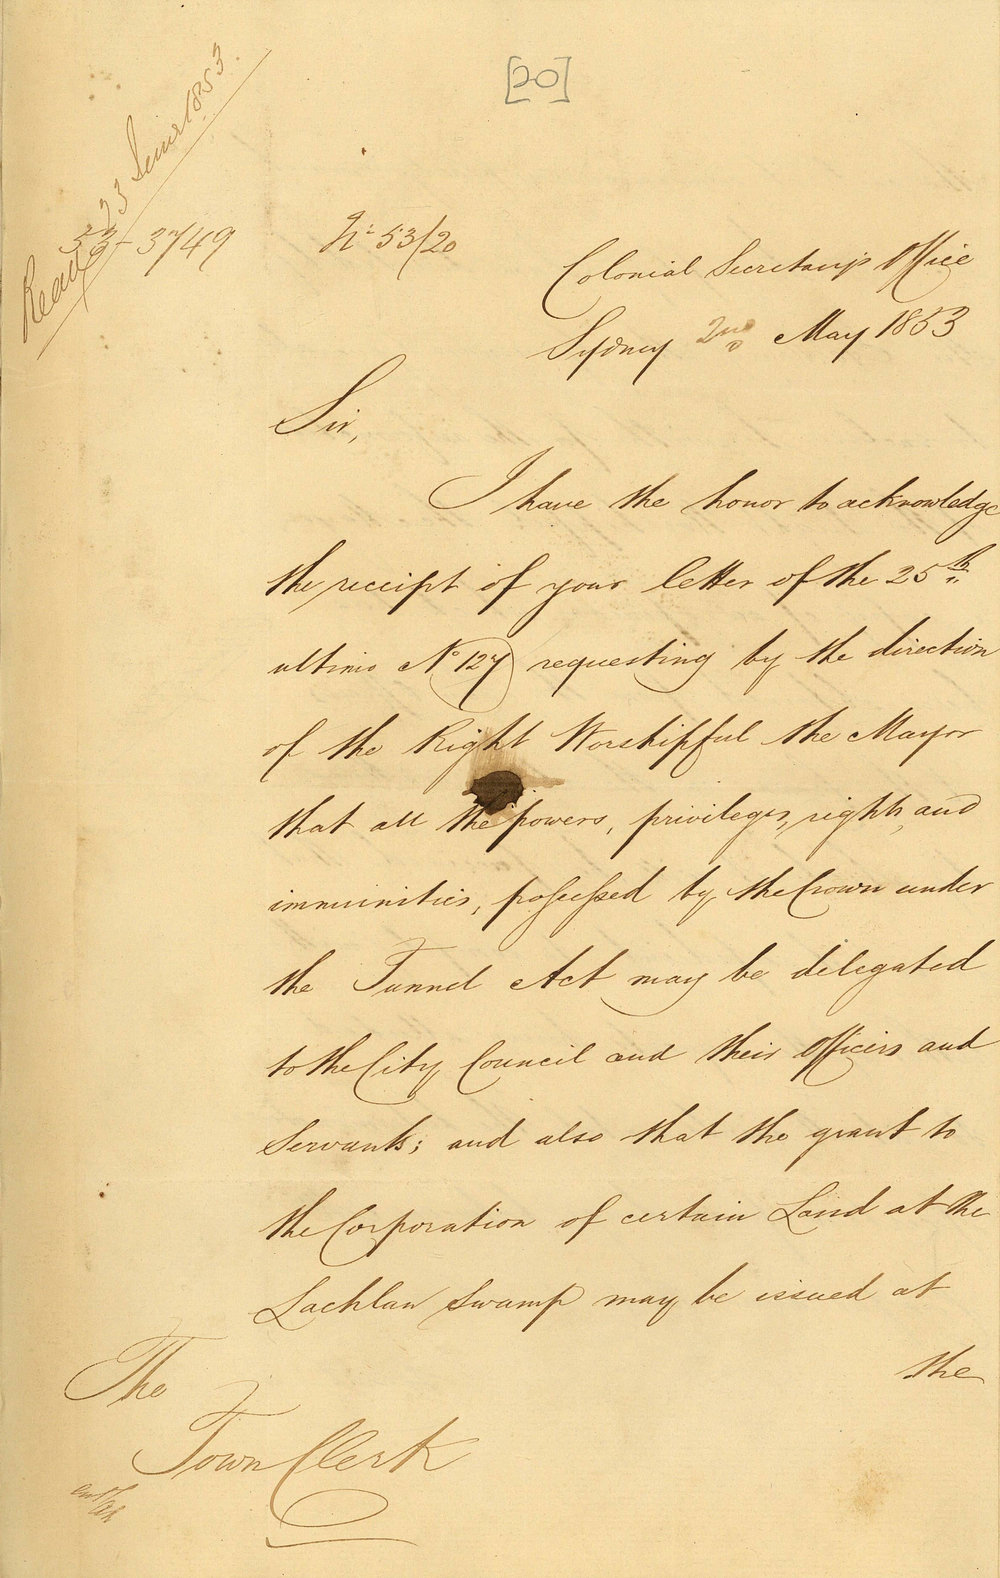 [20]
Read 23 June 1853.
53 - 3749
No 53/20
Colonial Secretary's Office
Sydney 2nd May 1853
Sir,
I have the honor to acknowledge
the receipt of your letter of the 25th
ultimo No 127 requesting by the direction
of the Right Worshipful the Mayor
that all the powers, privileges, rights, and
immunities, possessed by the Crown under
the Tunnel Act may be delegated
to the City Council and their Officers and
Servants; and also that the grant to
the Corporation of certain Land at the
Lachlan Swamp may be issued at
the
The
Town Clerk